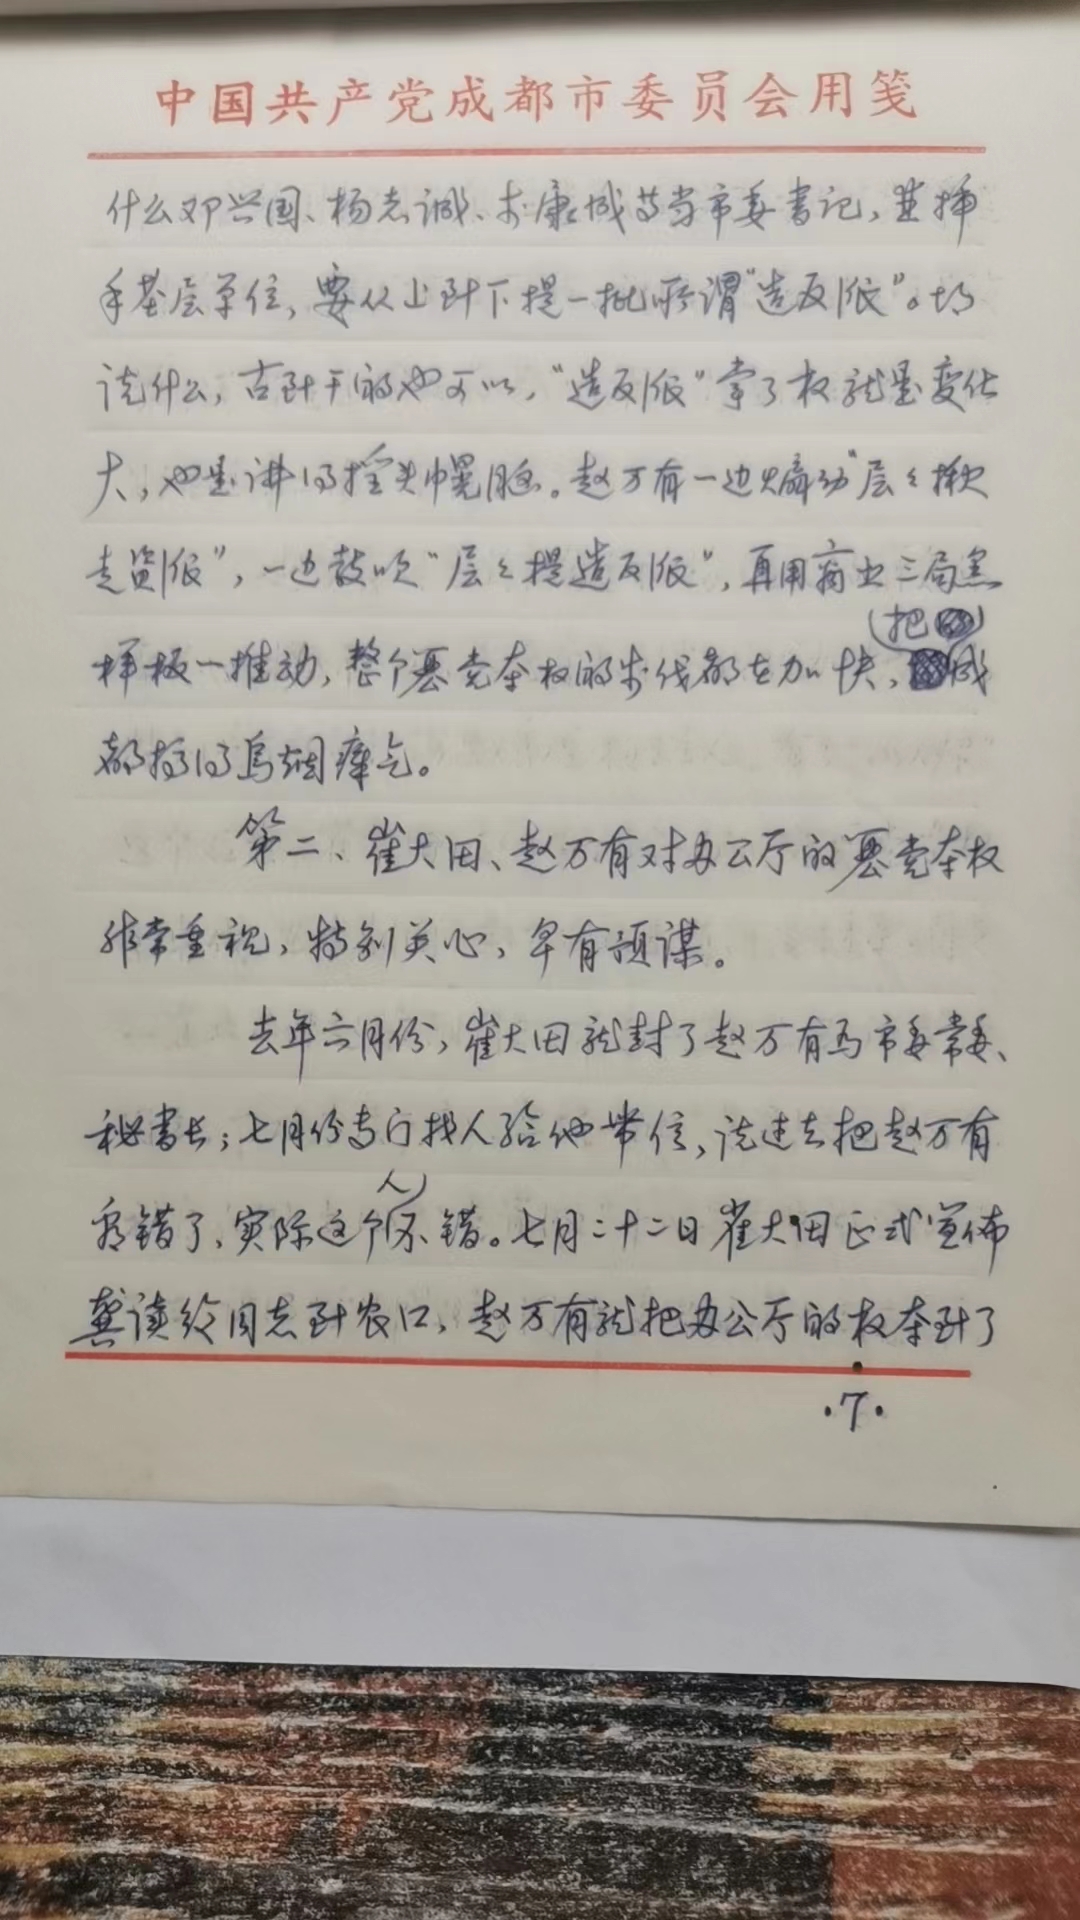 中国共产党成都市委员会用笺
什么邓兴国、杨志诚、 康城等当市委书记，并插
手基层单位，要从上到下提一批所谓“造反派”。胡
说什么，右到干的也可以，“造反派”掌了权就是变化
大，也是讲的摇头幌脑。赵万有一边煽动“层々揪
走资派”，一边鼓吹“层々提造反派”，再用商业三局黑
把
样板一推动，整个篡党夺权的步伐都在加快， 成
都搞的乌烟瘴气。
第二、崔大田、赵万有对办公厅的篡党夺权
非常重视，特别关心，早有预谋。
去年六月份，崔大田就封了赵万有为市委常委、
秘书长；七月份专门找人给他带信，说过去把赵万有
看错了，实际这个人不错。七月二十二日崔大田正式宣佈
龚读纶同志到农口，赵万有就把办公厅的权夺到了
·7·